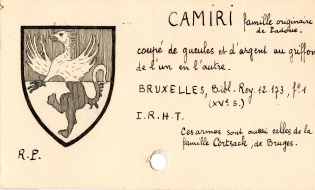 CAMIRI famille originaire
de Padoue.
coupé de gueules et d'argent au griffon
de l'un en l'autre.
BRUXELLES, Bibl. Roy. 12.173, f. 1
(XVe s.)
I.R.H.T.
Ces armes sont aussi celles de la
famille Cortsack, de Bruges.
R.P.